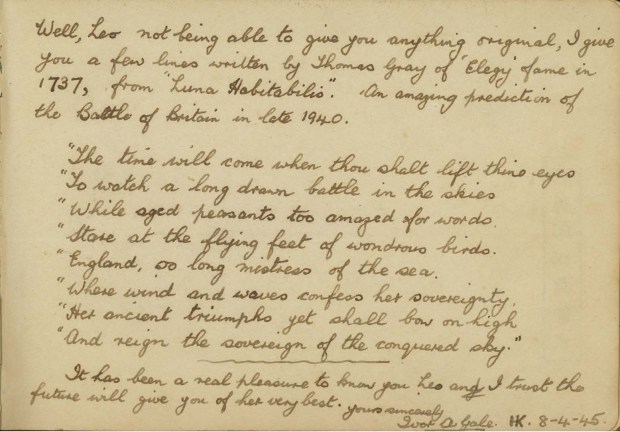 Well, Leo not being able to give you anything original, I give
you a few lines written by Thomas Gray of 'Elegy' fame in
1737, from "Luna Habitabilis". An amazing prediction of
the Battle of Britain in late 1940.
"The time will come when thou shalt lift thine eyes
"To watch a long drawn battle in the skies
"While aged peasants too amazed for words.
"Stare at the flying feet of wondrous birds.
"England, so long mistress of the sea.
"Where wind and waves confess her sovereignty,
"Her ancient triumphs yet shall bow on high
"And reign the sovereign of the conquered sky."
It has been a real pleasure to know you Leo and I trust the
future will give you of her very best. yours sincerely
Ivor A Gale. HK. 8-4-45.